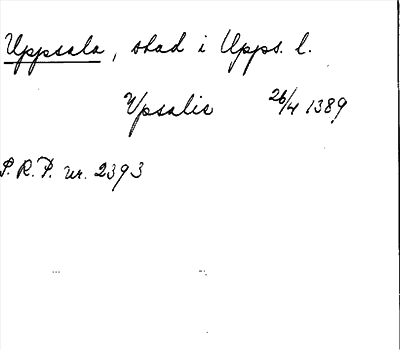 Uppsala, stad i Upps. l.
Upsalie 26/4 1389
S.R.P. nr. 2393